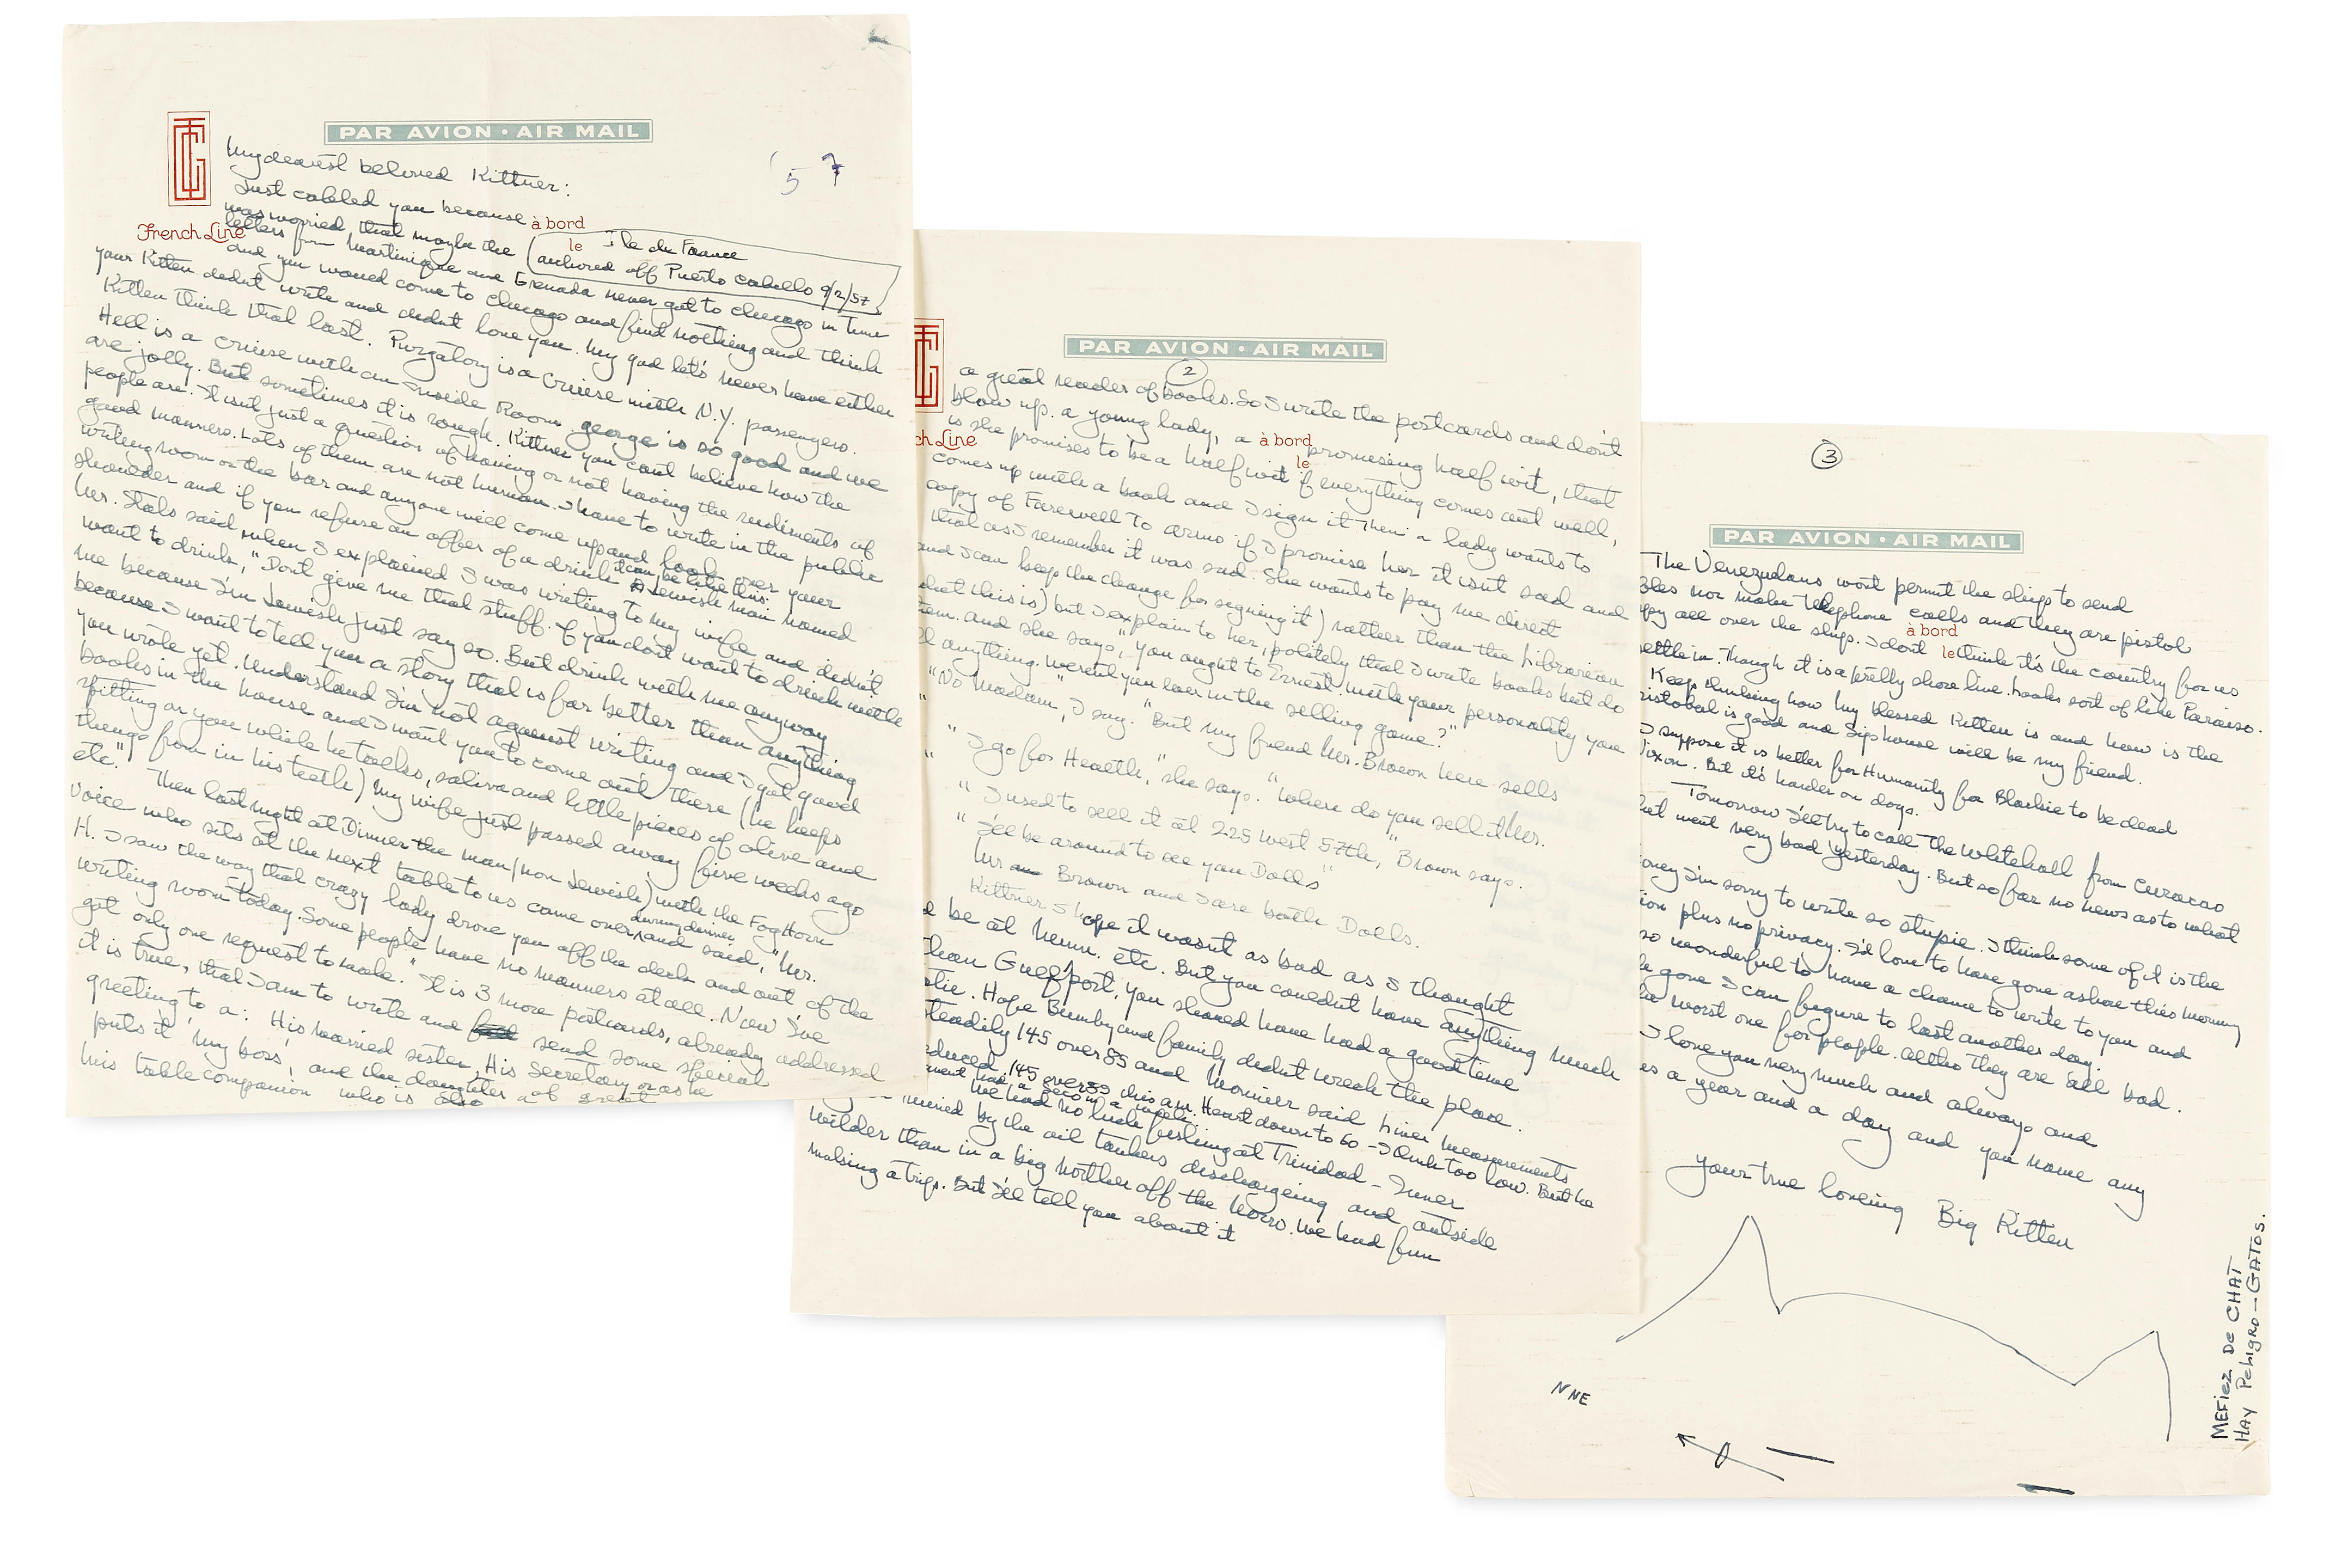 PAR AVION · AIR MAIL
'57
My dearest beloved Kittner:
Just cabled you because
was worried that maybe the
French Line
à bord
le Ile de France
anchored off Puerto Cabello 9/2/57
letters from Martinique and Grenada never got to Chicago in time
and you would come to Chicago and find nothing and think
your Kitten didnt write and didnt love you. My god let's never have either
Kitten think that last. Purgatory is a cruise with N.Y. passengers.
Hell is a cruise with an inside Room. George is so good and we
are jolly. But sometimes it is rough. Kittner you cant believe how the
people are. It isnt just a question of having or not having the rudiments of
good manners. Lots of them are not human. I have to write in the public
writing room or the bar and anyone will come up and look over your
shoulder and if you refuse an offer of a drink it can be like this: A Jewish man named
Mr. Stals said when I explained I was writing to my wife and didn't
want to drink, "Dont give me that stuff. If you dont want to drink with
me because I'm Jewish just say so. But drink with me anyway
because I want to tell you a story that is far better than anything
you wrote yet. Understand I'm not against writing and I got good
books in the house and I want you to come out there (he keeps
spitting on you while he talks, saliva and little pieces of olive and
things from in his teeth) My wife just passed away five weeks ago
etc."
Then last night at Dinner the man (non Jewish) with the Fog Horn
voice who sits at the next table to us came over, during dinner, and said, "Mr.
H. I saw the way that crazy lady drove you off the deck and out of the
writing room today. Some people have no manners at all. Now I've
got only one request to make." It is 3 more postcards, already addressed
it is true, that I am to write and send some special
greeting to a: His married sister, His Secretary or as he
puts it 'my boss', and the daughter of
his table companion who is also
PAR AVION · AIR MAIL
2
a great reader of books. So I write the postcards and don't
blow up. A young lady, a promising half wit, that
à bord
le
is she promises to be a half wit if everything comes out well,
comes up with a book and I sign it. Then a lady wants to
copy of Farewell To Arms if I promise her it isnt sad and
that as I remember it was sad. She wants to pay me direct
and I can keep the change for signing it) rather than the Librarian
what this is) but I explain to her, politely that I write books but do
them. And she says, "you ought to Ernest. With your personality you
anything. Werent you ever in the selling game?"
"No Madam", I say. "But my friend Mr. Brown here sells
"I go for Health," she says. "Where do you sell it Mr.
"I used to sell it at 225 West 57th," Brown says.
"I'll be around to see you Dolls"
Mr Brown and I are both Dolls.
Kittner I hope it wasn't as bad as I thought
be at Minn. etc. But you couldnt have anything much
than Gulfport, you should have had a good time
Hope Bumby and family didnt wreck the place.
steadily 145 over 85 and Monnier said liver measurements
145 over 80 this am. Heart down to 60 - I think too low. But he
We had no luck fishing at Trinidad - Inner
ruined by the oil tankers dischargeing and outside
wilder than in a big norther off the Morro. We had fun
making a trip. But I'll tell you about it
PAR AVION · AIR MAIL
3
The Venezuelans wont permit the ships to send
nor make telephone calls and they are pistol
à bord
le
all over the ship. I dont think it's the country for us
settle in. Though it is a pretty shore line. Looks sort of like Paraiso.
Keep thinking how my blessed Kitten is and how is the
is good and will be my friend.
I suppose it is better for Humanity for Blackie to be dead
But it's harder on dogs.
Tomorrow I'll try to call The Whitehall from Curacao
went very bad yesterday. But so far no news as to what
I'm sorry to write so stupid. I think some of it is the
plus no privacy. I'd love to have gone ashore this morning
so wonderful to have a chance to write to you and
gone I can figure to last another day.
worst one for people. Altho they are all bad.
I love you very much and always and
a year and a day and you name any
your true loveing Big Kitten
NNE
MEFIEZ DE CHAT
HAY PELIGRO - GATOS.